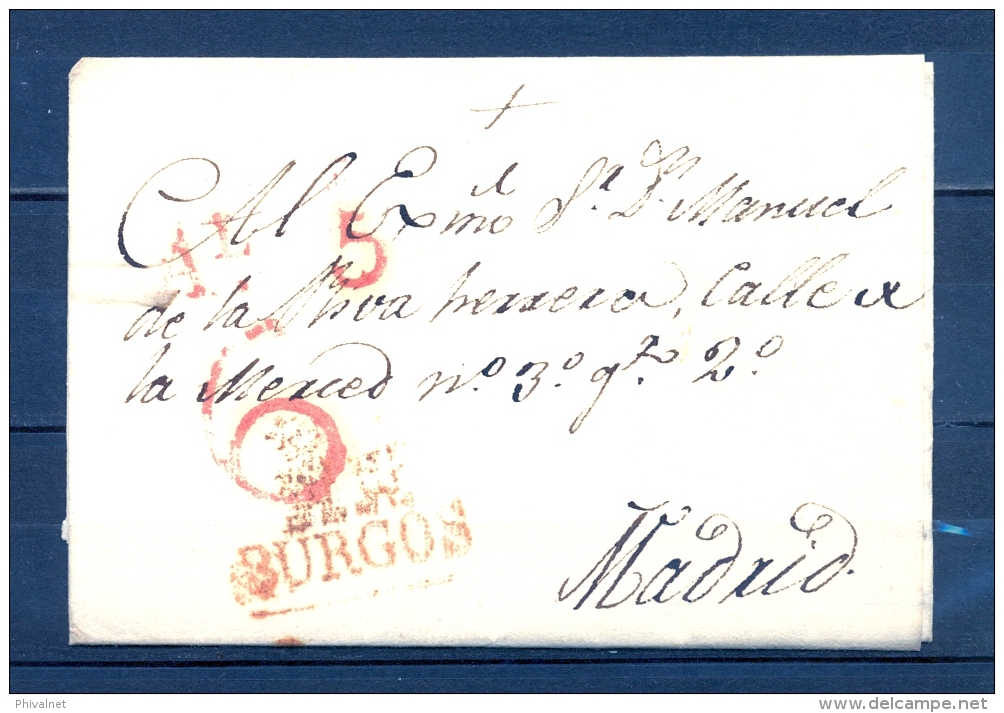 +
Al Exmo Sr. Dn. Manuel
de la Riva herrera, Calle de
la Merced no. 3o. qto. 2o.
Madrid.
5
6
BURGOS
Phivalnet
www.delcampe.net